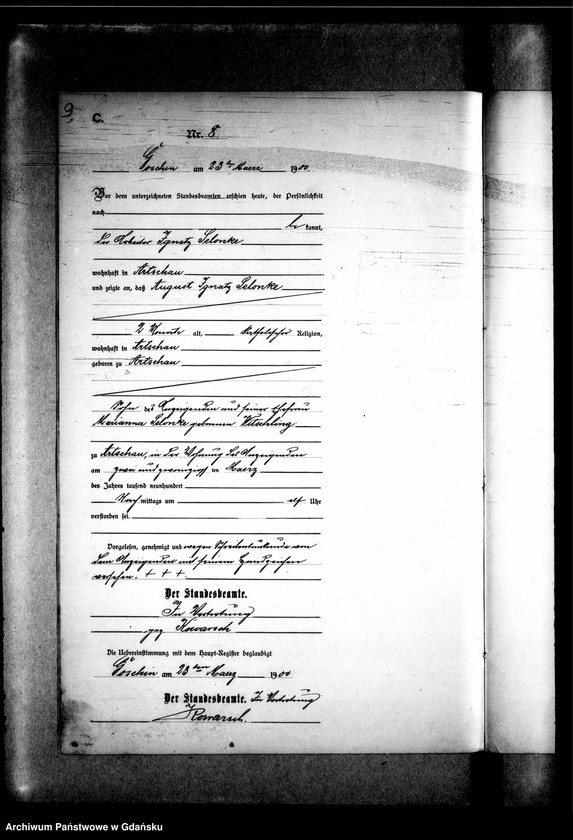 9.
C.
Nr. 8.
Göschin am 23ten Maerz 1900.
Vor dem unterzeichneten Standesbeamten erschien heute, der Persönlichkeit
nach
be kannt,
der Arbeiter Ignatz Selonke
wohnhaft in Artschau
und zeigte an, daß August Ignatz Selonke
2 Monate alt, katholischer Religion,
wohnhaft in Artschau
geboren zu Artschau
Sohn des Anzeigenden und seiner Ehefrau
Marianna Selonke geborenen
zu Artschau, in der Wohnung des Anzeigenden
am zwei und zwanzigsten Maerz
des Jahres tausend neunhundert
Nach mittags um elf Uhr
verstorben sei.
Vorgelesen, genehmigt und wegen Schreibensunkunde von
dem Anzeigenden mit seinem Handzeichen
versehen. + + +
Der Standesbeamte.
In Vertretung
gez Kowarsch
Die Uebereinstimmung mit dem Haupt-Register beglaubigt
Göschin am 23ten Maerz 1900
Der Standesbeamte. In Vertretung
Kowarsch.
Archiwum Państwowe w Gdańsku